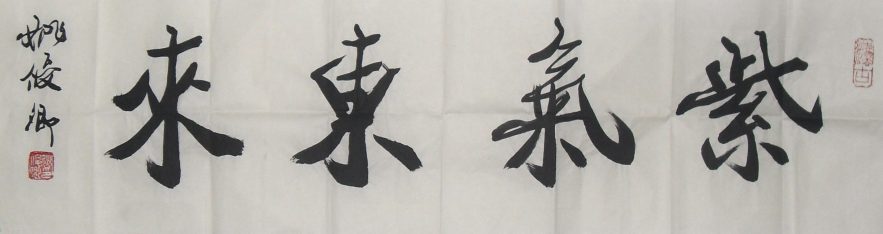 紫氣東來
姚俊卿